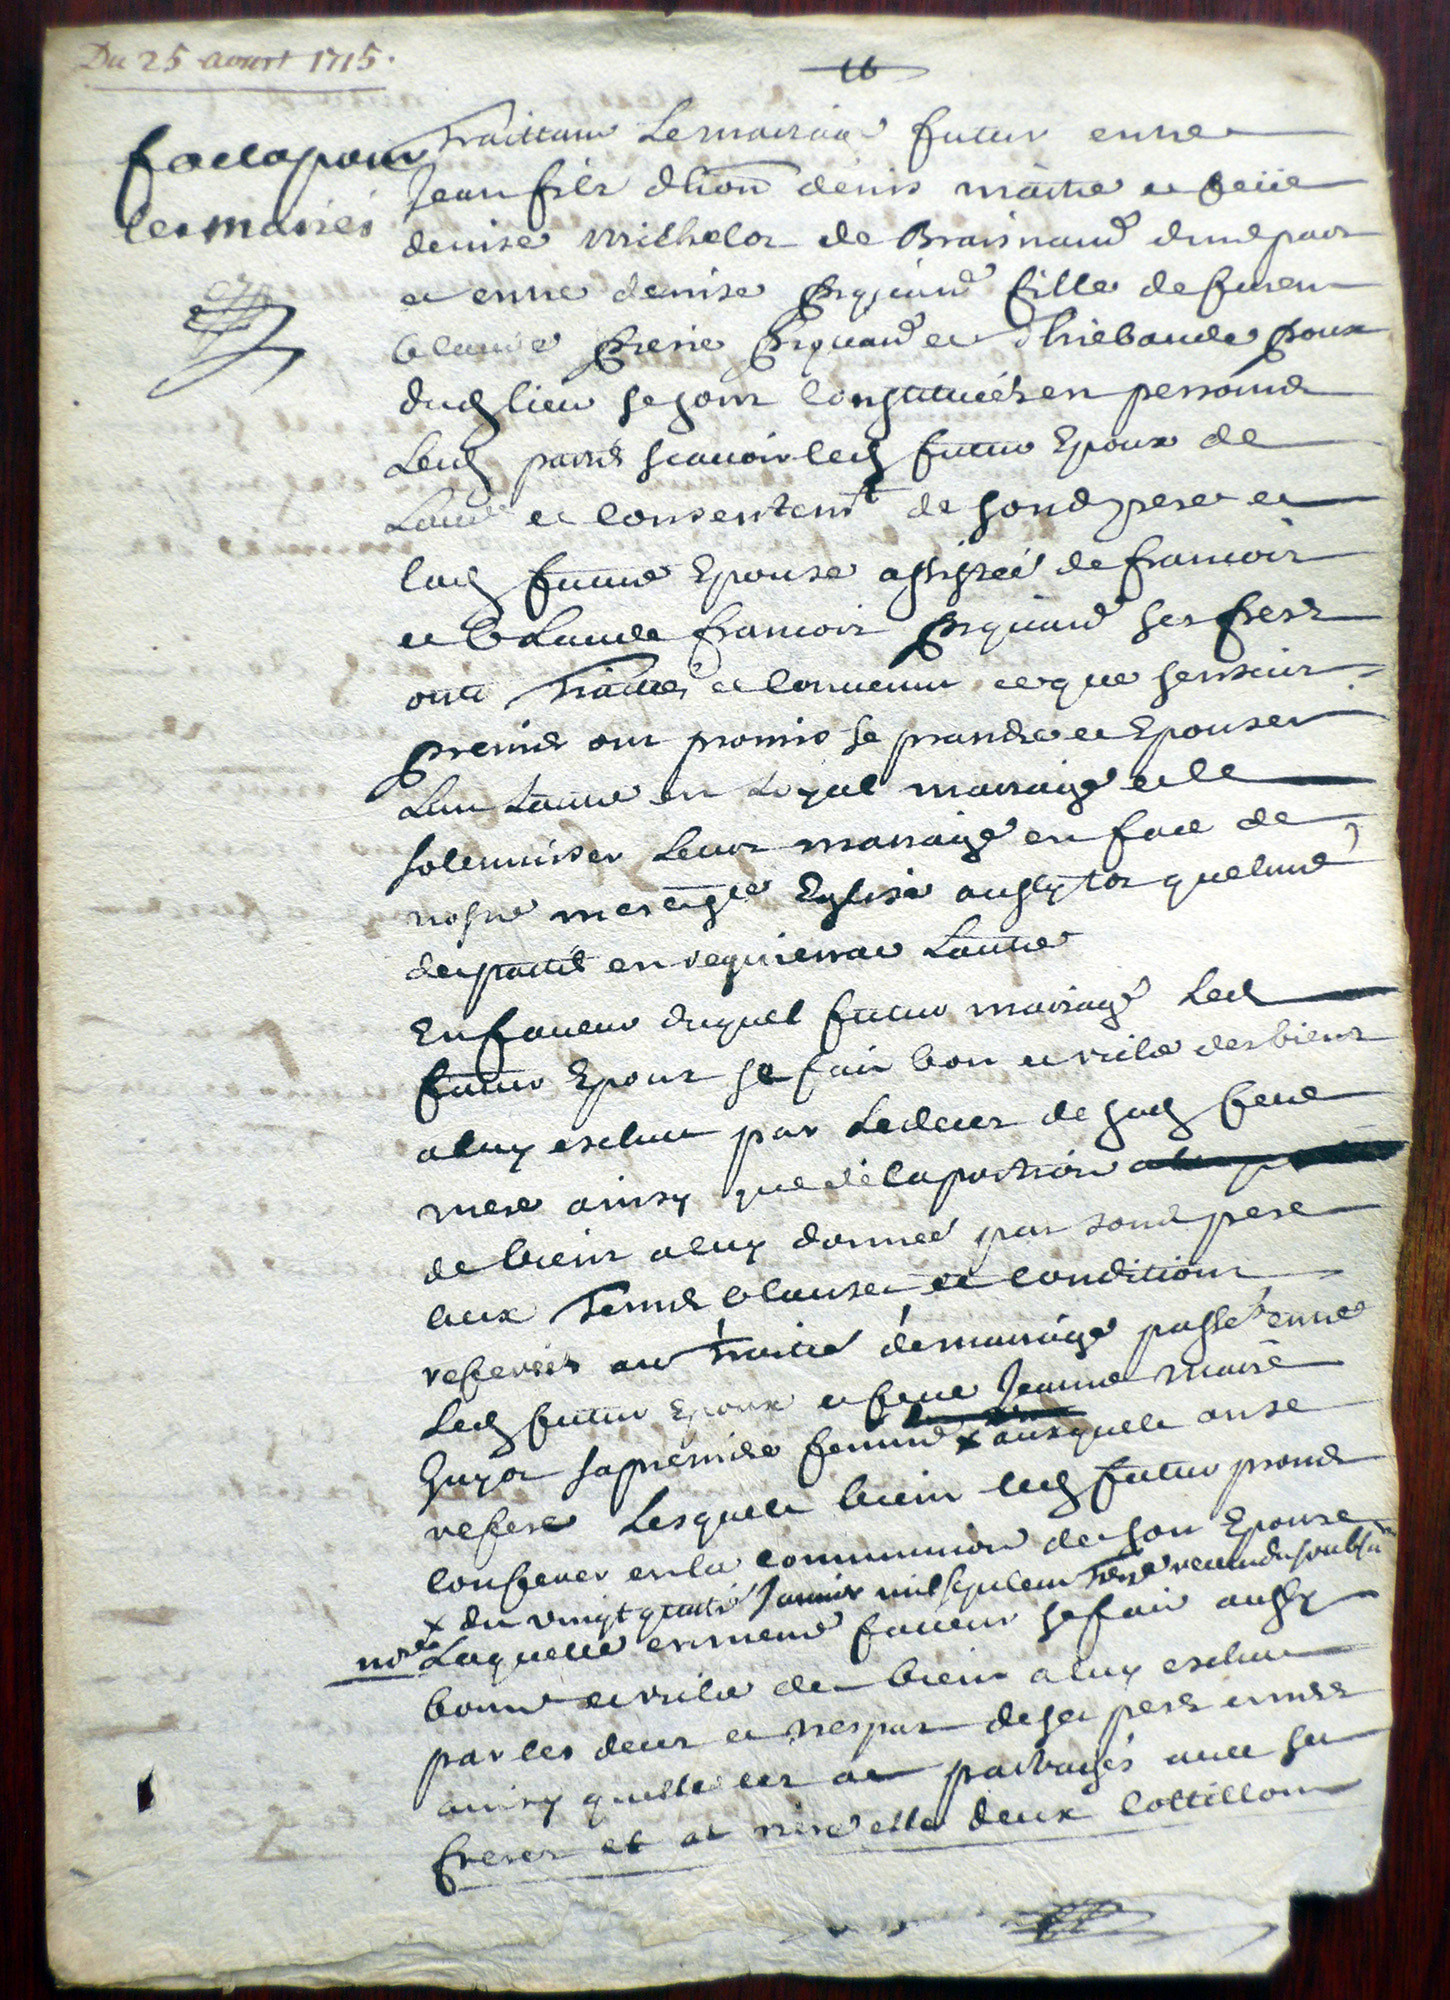 Du 25 aoust 1715.
16
facta pour
les mariés
Traittant Le mariage futur entre
Jean fils d'hon denis maitre et feüe
denise Michelot de Braisnand d'une part
et entre denise fille de furent
Claude pierre et Thiebaude poux
dud lieu se sont constitués en personnes
Lesd partie scavoir led futur Epoux de
Lavis et consentemt de sond pere et
lad future Epouse assistée de francois
et Claude francois ses freres
ont Traités et convenu et que
premier ont promis se prandre et Epouser
Lun Lautre en Loyal mariage et le
solemniser Leurs mariage en face de
nostre mere ste Eglise aussytot que lune
des parties en requierrat Lautre
En faveur duquel futur mariage Led
futur Epoux se fait bon et riche des biens
a luy eschut par Le deces de sad feue
mere ainsy que de la portion
de biens a luy donnée par sond pere
aux Termes Clauses et conditions
reservées au Traité de mariage passé entre
Led futur Epoux et feue Jeanne marie
Guyot sa premiere femme x ausquels on se
refere Lesquels biens led futur promet
conferer en la communion de son Epouse
x du vingt quatre Janvier mil sept cent Treze receu du soubs
nore Laquelle en meme faveur se fait aussy
bonne et riche des biens a luy eschut
par les deces et trespas de ses pere et mere
ainsy quelle les at partagés avec ses
freres et at riere elle deux Cottillons